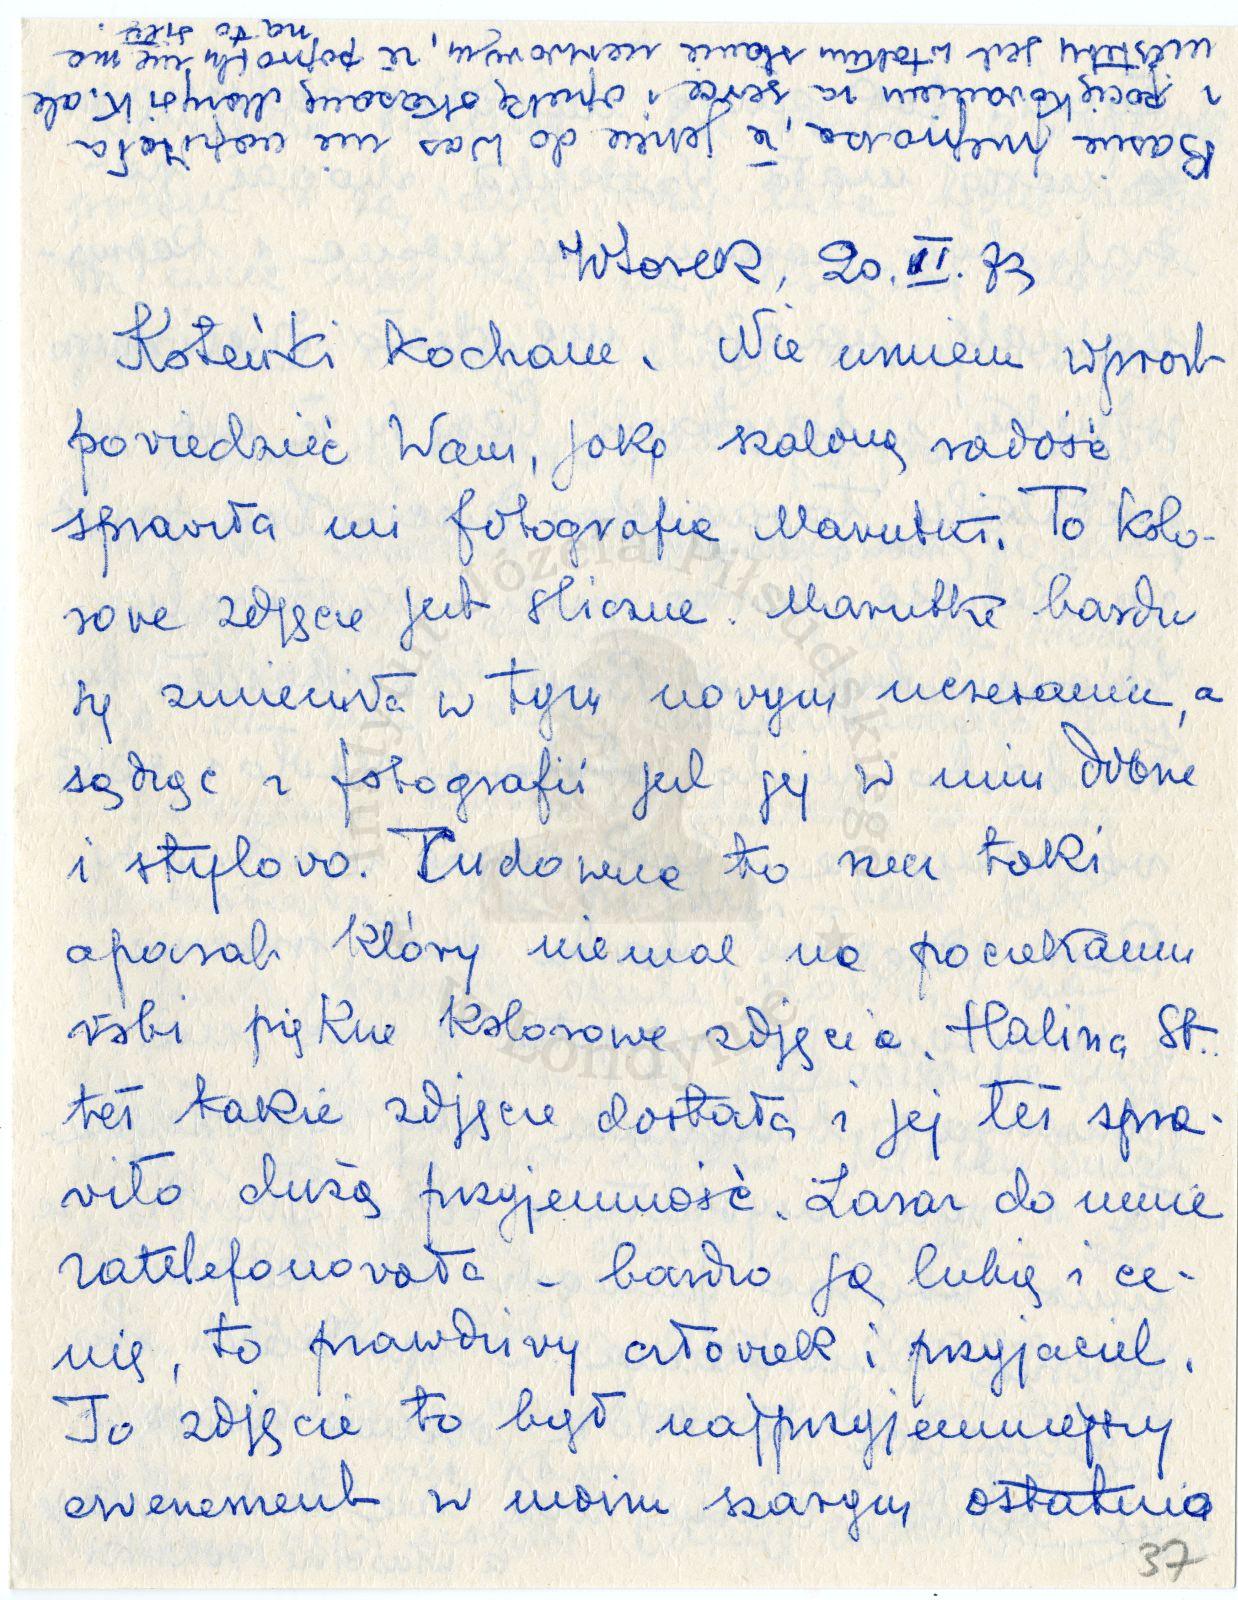 Basia przeprasza, że jeszcze do Was nie napisała
z podziękowaniem za serce i opiekę okazaną Marysi K, ale
niestety jest w takim stanie nerwowym, że poprostu nie ma
na to siły.
Wtorek, 20.XI.73
Koteńki kochane. Nie umiem wprost
powiedzieć Wam, jaką szaloną radość
sprawiła mi fotografia Marutki. To kolo-
rowe zdjęcie jest śliczne. Marutka bardzo
się zmieniła w tym nowym uczesaniu, a
sądząc z fotografii jest jej w nim dobrze
i stylowo. Cudowna to rzecz taki
aparat który niemal na poczekaniu
robi piękne kolorowe zdjęcia. Halina St.
też takie zdjęcie dostała i jej też spra-
wiło dużą przyjemność. Zaraz do mnie
zatelefonowała – bardzo ją lubię i ce-
nię, to prawdziwy człowiek i przyjaciel.
To zdjęcie to był najprzyjemniejszy
ewenement w moim szarym ostatnio
37
Instytut Józefa Piłsudskiego
w Londynie